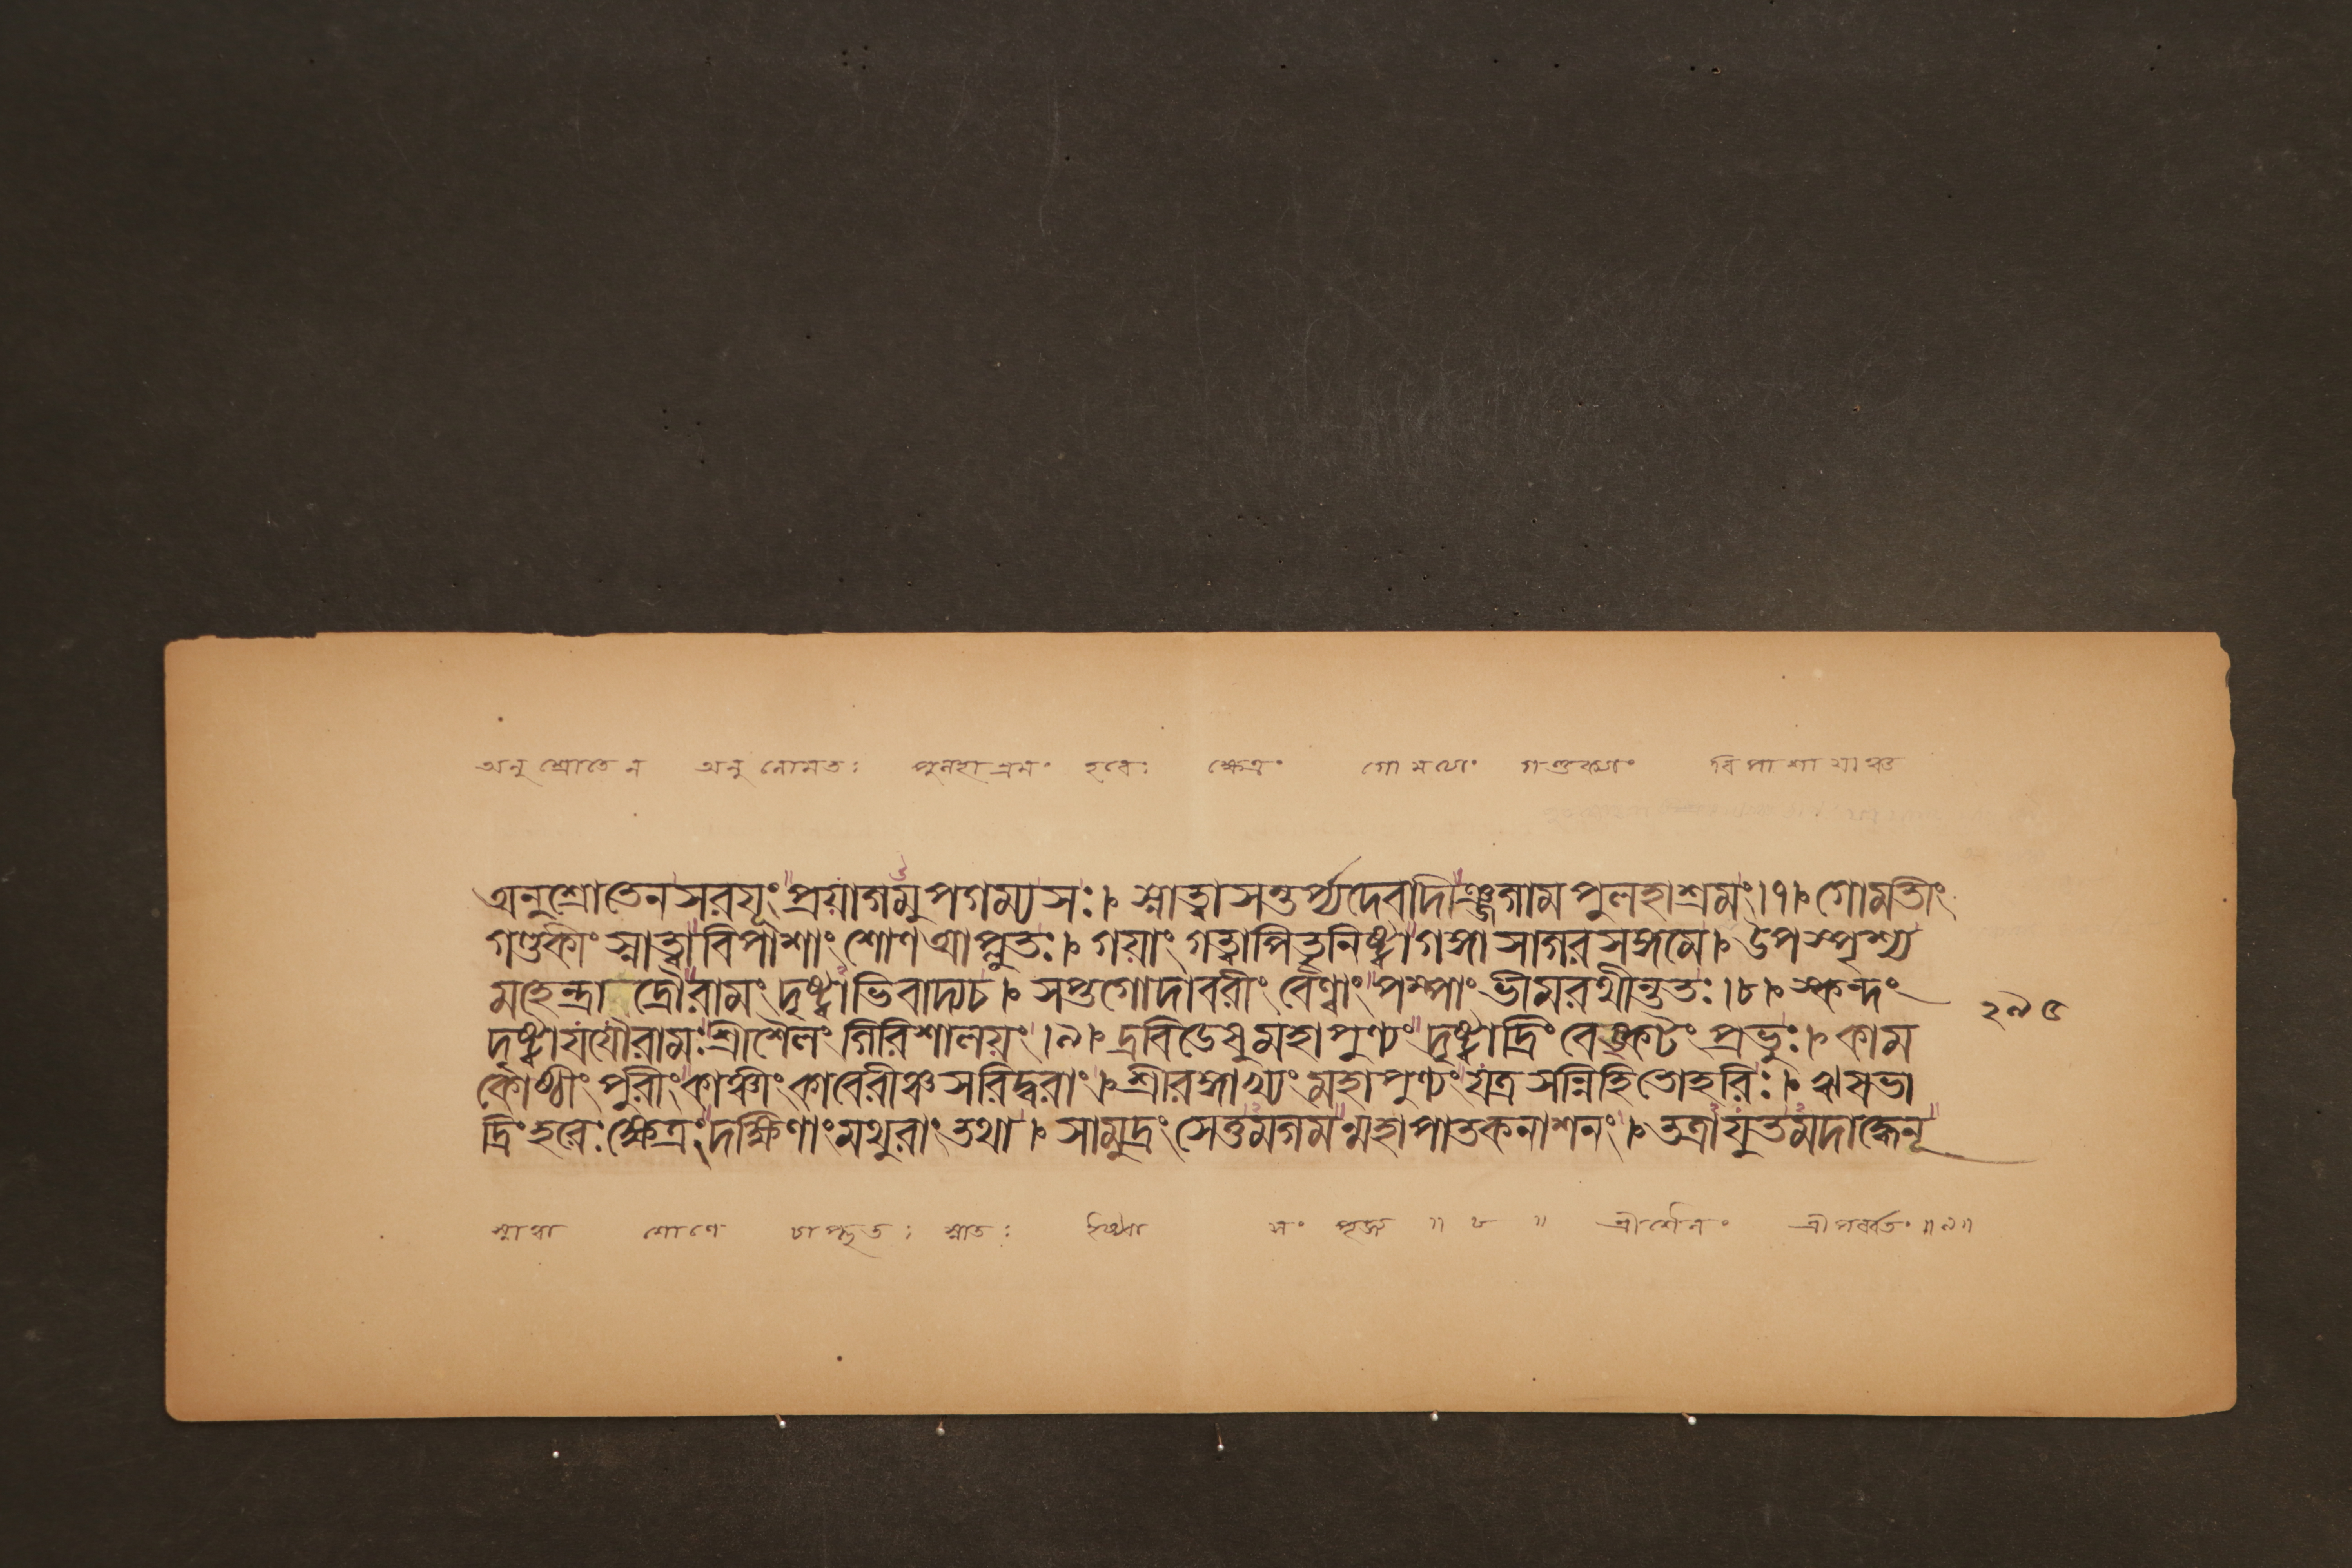 অনুশ্রোতেন অনুলোমতঃ পুলহাশ্রমং হরেঃ ক্ষেত্রং গোমত্যাং গণ্ডক্যাং বিপাশায়াঞ্চ
অনুশ্রোতেনসরযূং প্রয়াগমুপগম্যসঃ। স্নাত্বাসন্তর্প্যদেবাদীঞ্জগামপুলহাশ্রমং।৭। গোমতীং
গণ্ডকীং স্নাত্বাবিপাশাং শোণআপ্লুতঃ। গয়াং গত্বাপিতৃনিষ্ট্বাগঙ্গাসাগরসঙ্গমে। উপস্পৃশ্য
মহেন্দ্রাদ্রৌরামং দৃষ্ট্বাভিবাদ্যচ। সপ্তগোদাবরীং বেণ্বাং পম্পাং ভীমরথীন্ততঃ।৮। স্কন্দং
২৯৫
দৃষ্ট্বাযযৌরামঃশ্রীশৈলং গিরিশালয়ং।৯। দ্রবিডেষুমহাপুণ্যং দৃষ্ট্বাদ্রিং বেঙ্কটং প্রভুঃ। কাম
কোষ্ণীং পুরীং কাঞ্চীং কাবেরীঞ্চ সরিদ্বরাং। শ্রীরঙ্গাখ্যং মহাপুণ্যং যত্র সন্নিহিতোহরিঃ। ঋষভা
দ্রিং হরেঃ ক্ষেত্রং দক্ষিণাং মথুরাং তথা। সামুদ্রং সেতুমগমন্মহাপাতকনাশনং। তত্রাযুতমদাদ্ধেনূ
স্নাত্বা শোণে চাপ্লুতঃ স্নাতঃ ইষ্ট্বা সংপূজ্য ॥ ৮ ॥ শ্রীশৈলং শ্রীপর্ব্বতং ॥৯॥